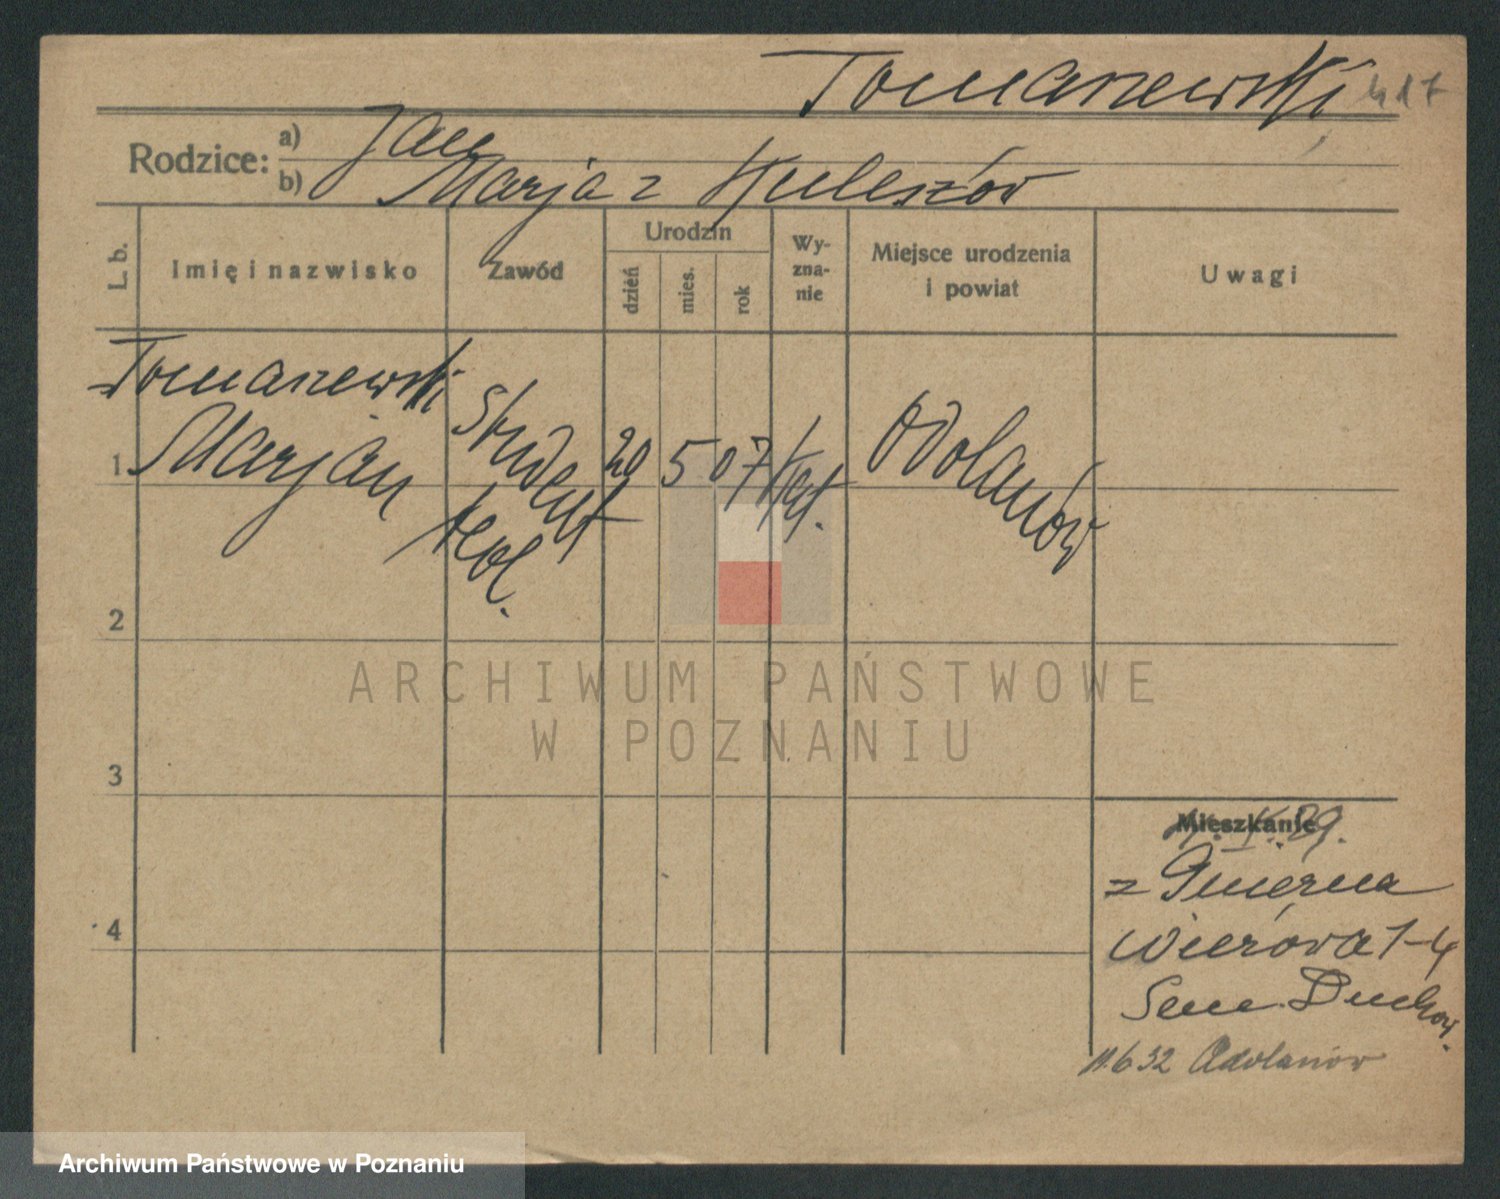 Tomaszewski 417
Rodzice: a) Jan
b) Marja z Kuleszów
L. b.
Imię i nazwisko
Zawód
Urodzin
dzień
mies.
rok
Wy-
zna-
nie
Miejsce urodzenia
i powiat
Uwagi
Tomaszewski
1 Marjan
Student
teol.
20
5
07
kat.
Odolanów
2
ARCHIWUM PAŃSTWOWE
W POZNANIU
3
Mieszkanie
z Gniezna
Wieżowa 1-4
Sem. Duchow.
4
11.6 32 Odolanów
Archiwum Państwowe w Poznaniu